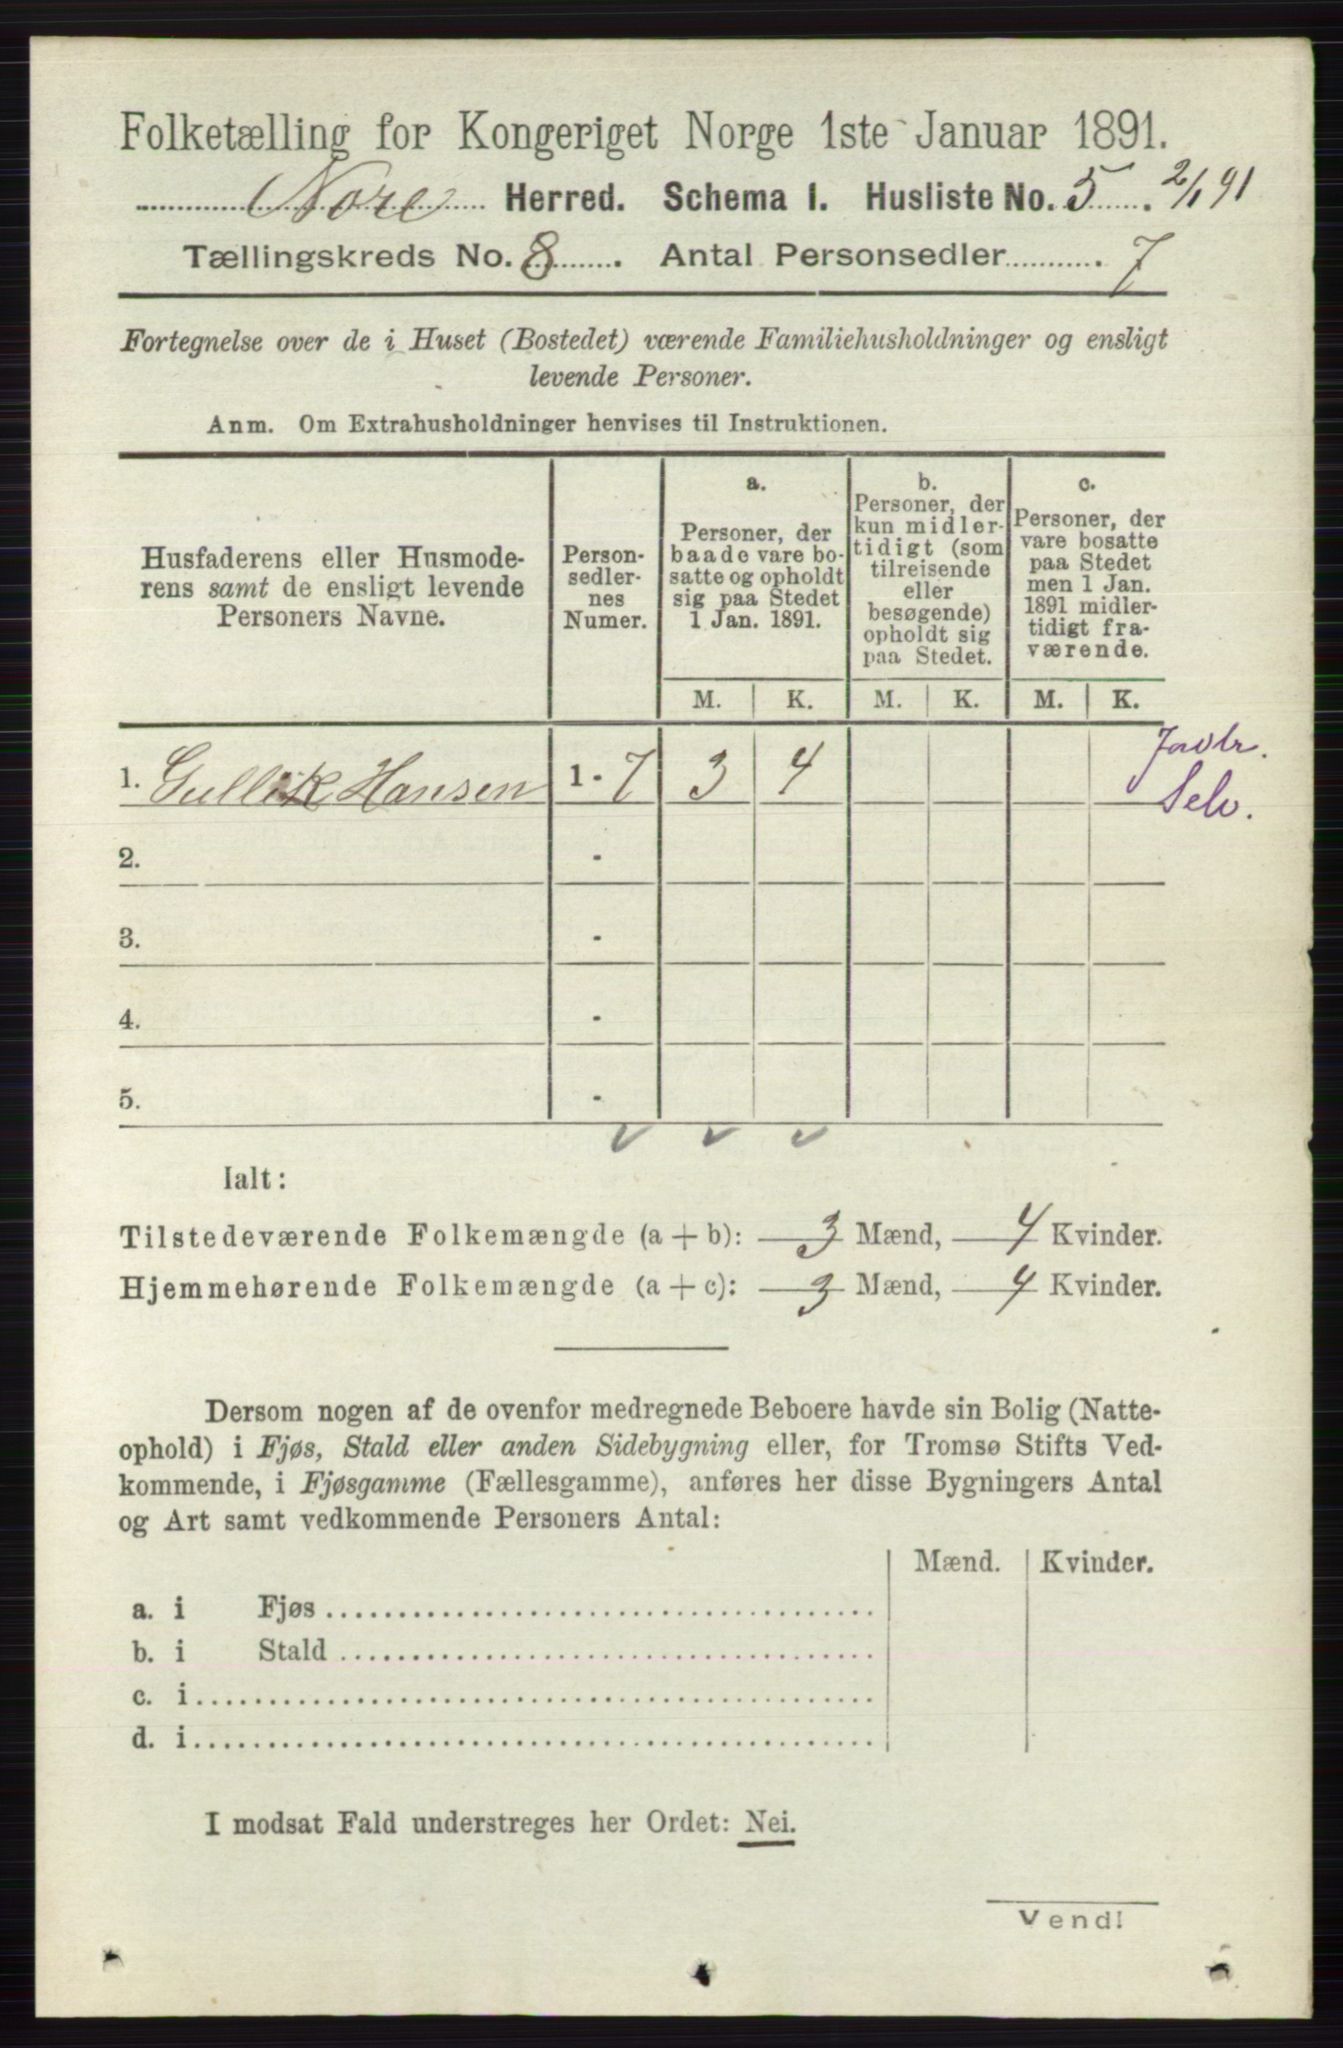 Folketælling for Kongeriget Norge 1ste Januar 1891.
Nore Herred. Schema I. Husliste No. 5. 2/1 91
Tællingskreds No. 8. Antal Personsedler 7
Fortegnelse over de i Huset (Bostedet) værende Familiehusholdninger og ensligt
levende Personer.
Anm. Om Extrahusholdninger henvises til Instruktionen.
Husfaderens eller Husmode-
rens samt de ensligt levende
Personers Navne.
Person-
sedler-
nes
Numer.
a.
Personer, der
baade vare bo-
satte og opholdt
sig paa Stedet
1 Jan. 1891.
b.
Personer, der
kun midler-
tidigt (som
tilreisende
eller
besøgende)
opholdt sig
paa Stedet.
c.
Personer, der
vare bosatte
paa Stedet
men 1 Jan.
1891 midler-
tidigt fra-
værende.
M. K. M. K. M. K.
1. Gullik Hansen 1 - 7 3 4
Selv.
2. -
3. -
4. -
5. -
Ialt:
Tilstedeværende Folkemængde (a + b): 3 Mænd, 4 Kvinder.
Hjemmehørende Folkemængde (a + c): 3 Mænd, 4 Kvinder.
Dersom nogen af de ovenfor medregnede Beboere havde sin Bolig (Natte-
ophold) i Fjøs, Stald eller anden Sidebygning eller, for Tromsø Stifts Ved-
kommende, i Fjøsgamme (Fællesgamme), anføres her disse Bygningers Antal
og Art samt vedkommende Personers Antal:
Mænd. Kvinder.
a. i Fjøs
b. i Stald
c. i
d. i
I modsat Fald understreges her Ordet: Nei.
Vend!